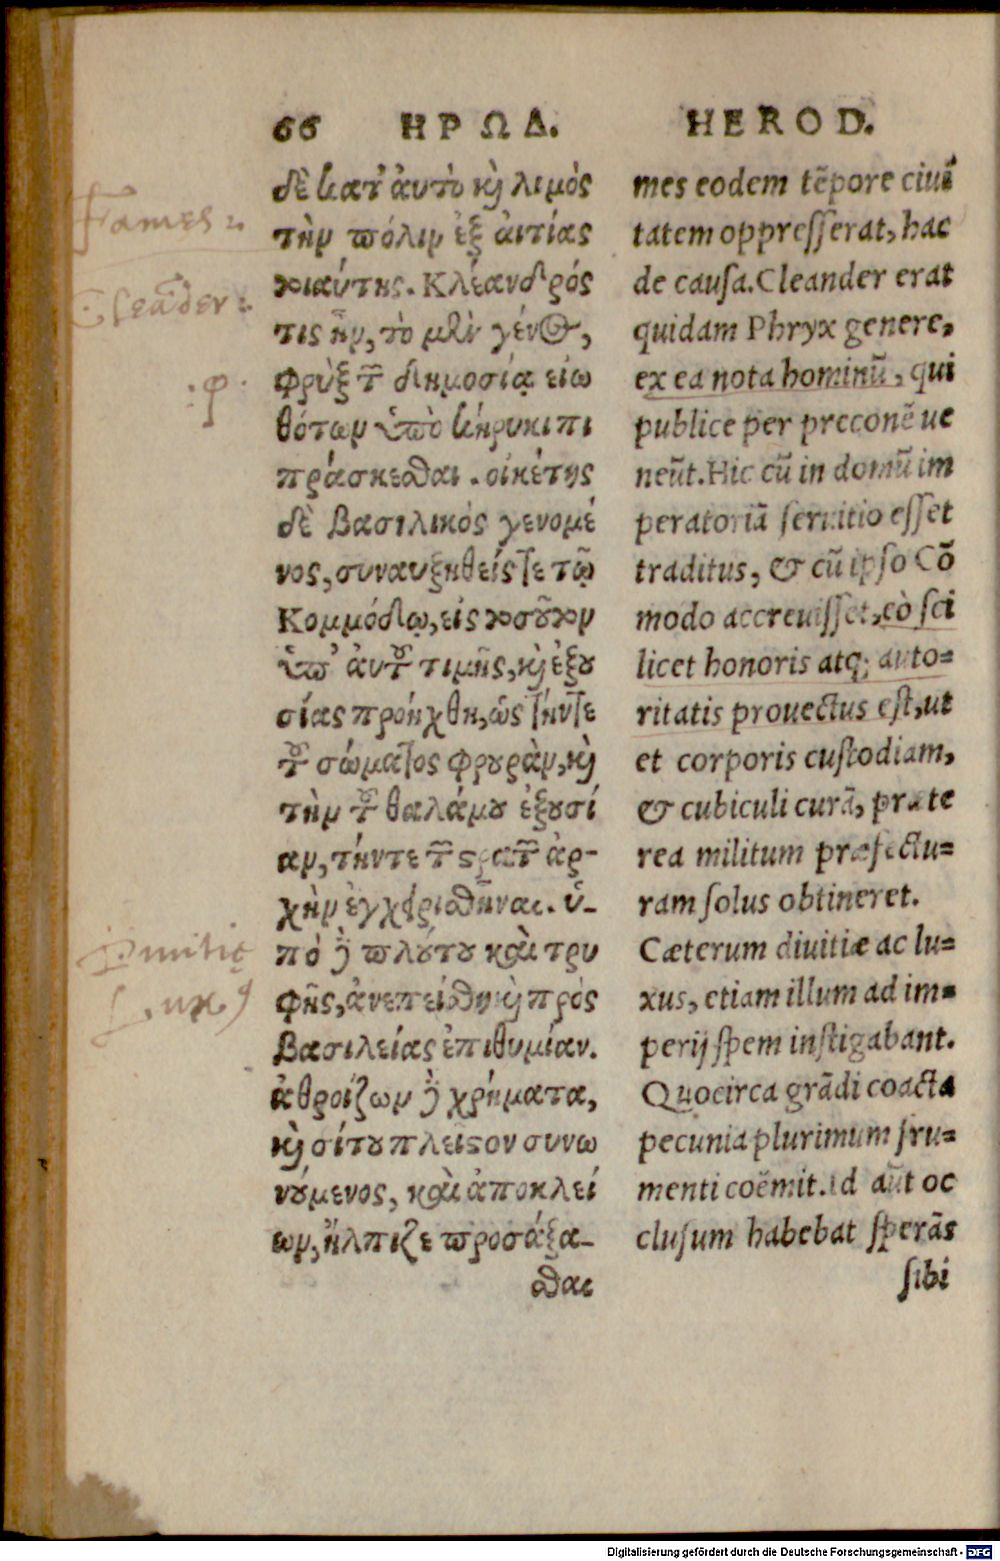 66 ΗΡΩΔ. HEROD.
Fames:
Cleāder:
δὲ κατ᾽ αὐτὸ κὶ λιμὸς
τὴν πόλιν ἐξ αἰτίας
τοιαύτης. Κλέανδρός
τις ἦν, τὸ μὲν γένος,
Φρὺξ τῶν δημοσίᾳ εἰω
θότων ὑπὸ κήρυκι πι
πράσκεσθαι. οἰκέτης
δὲ βασιλικὸς γενομέ
νος, συναυξηθείς τε τῷ
Κομμόδῳ, εἰς τοσοῦτον
ὑπ᾽ αὐτοῦ τιμῆς, κὶ ἐξου
σίας προήχθη, ὡς τήν τε
τοῦ σώματος φρουρὰν, κὶ
τὴν τοῦ θαλάμου ἐξουσί
αν, τήν τε τῶν στρατῶν ἀρ-
χὴν ἐγχειρισθῆναι. ὑ-
πὸ δὲ πλούτου καὶ τρυ
φῆς, ἀνεπείσθη κὶ πρὸς
βασιλείας ἐπιθυμίαν.
ἀθροίζων δὲ χρήματα,
κὶ σίτου πλεῖστον συνω
νούμενος, καὶ ἀποκλεί
ων, ἤλπιζε προσάξα-
σθαι
mes eodem tēpore ciui
tatem oppresserat, hac
de causa. Cleander erat
quidam Phryx genere,
ex ea nota hominū, qui
publice per preconē ue
neūt. Hic cū in domū im
peratoriā seruitio esset
traditus, & cū ipso Cō
modo accreuisset, eò sci
licet honoris atq; auto=
ritatis prouectus est, ut
et corporis custodiam,
& cubiculi curā, præte
rea militum præfectu=
ram solus obtineret.
Cæterum diuitiæ ac lu=
xus, etiam illum ad im=
perij spem instigabant.
Quocirca grādi coacta
pecunia plurimum fru=
menti coēmit. Id aūt oc
clusum habebat sperās
sibi